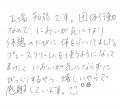 工場勤務です。団体行動
なので、においが気になり
体感のために、体をふいたり、
ブレークリームを使うようになって
まったくにおいが気にならずに
びっくりするやら、嬉しいやらで
感謝しています。